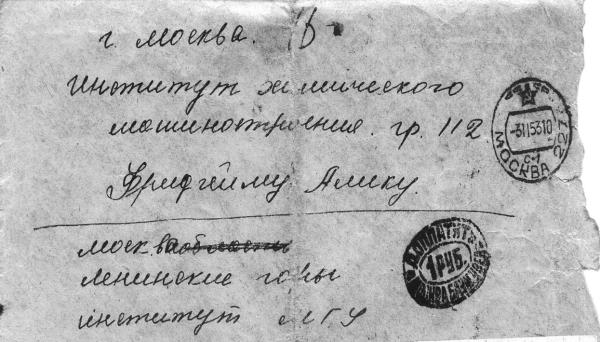 г. Москва. В
Институт химического
машиностроения. гр. 112
Фридгейму Алику.
Моск.
ленинские горы
институт МГУ
МОСКВА 227
-3II5310
С-1
ДОПЛАТИТЬ
1 РУБ.